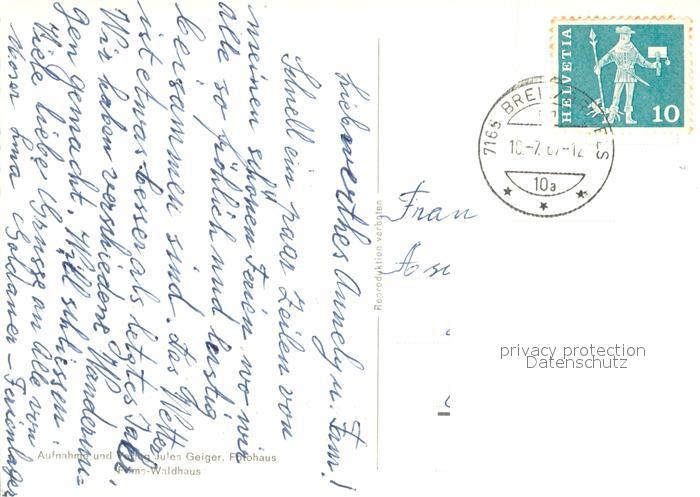 Liebwerthes Annely u. Fam.!
Schnell ein paar Zeilen von
meinen schönen Ferien wo wir
alle so fröhlich und lustig
beisammen sind. Das Wetter
ist etwas besser als letztes Jahr.
Wir haben verschiedene Wanderun-
gen gemacht. Will schliessen.
Viele liebe Grüsse an Alle von
Goldauer - Ferienlager
Aufnahme und Verlag Jules Geiger, Fotohaus
Flims-Waldhaus
Reproduktion verboten
HELVETIA
10
7165 BREIL/BRIGELS
10.-7.67-12
10a
Frau
privacy protection
Datenschutz